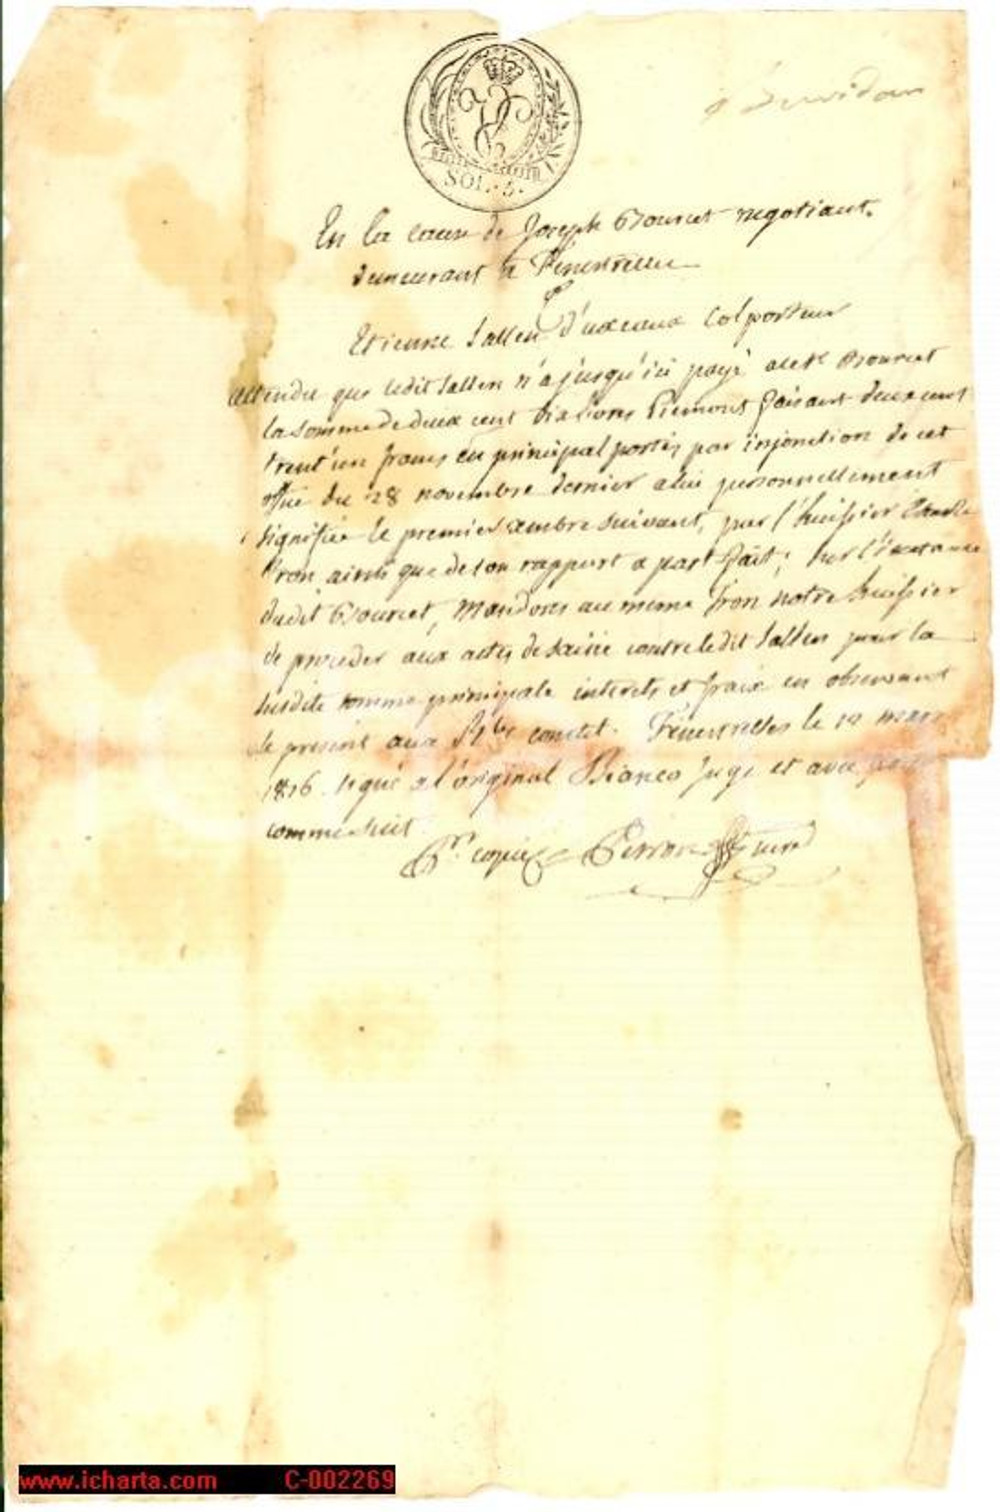 SOL. 5.
En la cause de Joseph Bourcet negotiant
demeurant a Fenestrelles
C
Etienne Sallen d'usseaux Colporteur
Attendu que ledit Sallen n'a jusqu'ici payé audt Bourcet
la somme de deux cent livres Piemont faisant deux cent
trent'un francs en principal portés par injonction de cet
office du 28 novembre dernier a lui personnellement
signifiée le premier xambre suivant, par l'huissier
Tron ainsi que de son rapport a part fait; sur l'instance
dudit Bourcet, Mandons au meme Tron notre huissier
de proceder aux actes de saisie contre ledit Sallen pour la
susdite somme principale interets et fraix en observant
le present aux Rles constit. Fenestrelles le 12 mars
1816. signé a l'original Bianco Juge et avec
comme suit
Pr. copie Perron
www.icharta.com C-002269